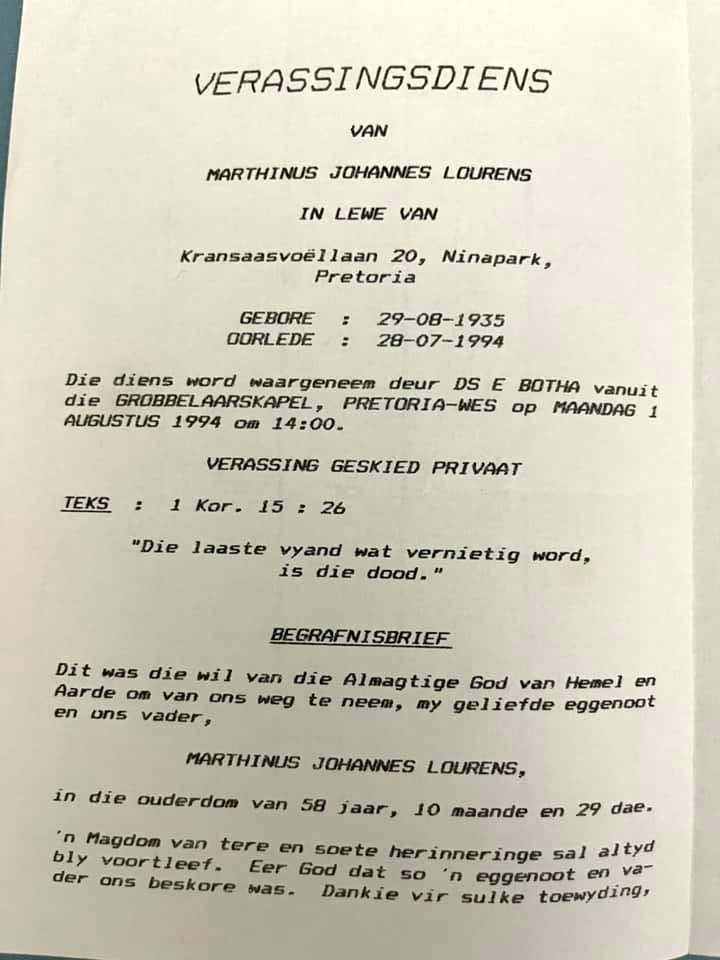 VERASSINGSDIENS
VAN
MARTHINUS JOHANNES LOURENS
IN LEWE VAN
Kransaasvoëllaan 20, Ninapark,
Pretoria
GEBORE : 29-08-1935
OORLEDE : 28-07-1994
Die diens word waargeneem deur DS E BOTHA vanuit
die GROBBELAARSKAPEL, PRETORIA-WES op MAANDAG 1
AUGUSTUS 1994 om 14:00.
VERASSING GESKIED PRIVAAT
TEKS : 1 Kor. 15 : 26
"Die laaste vyand wat vernietig word,
is die dood."
BEGRAFNISBRIEF
Dit was die wil van die Almagtige God van Hemel en
Aarde om van ons weg te neem, my geliefde eggenoot
en ons vader,
MARTHINUS JOHANNES LOURENS,
in die ouderdom van 58 jaar, 10 maande en 29 dae.
'n Magdom van tere en soete herinneringe sal altyd
bly voortleef. Eer God dat so 'n eggenoot en va-
der ons beskore was. Dankie vir sulke toewyding,